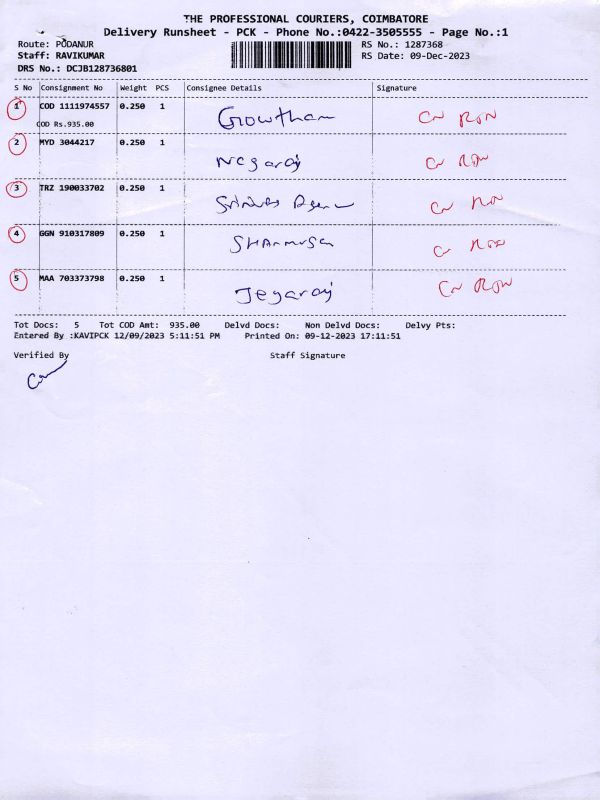 THE PROFESSIONAL COURIERS, COIMBATORE
Delivery Runsheet - PCK - Phone No.:0422-3505555 - Page No.:1
Route: PODANUR RS No.: 1287368
Staff: RAVIKUMAR RS Date: 09-Dec-2023
DRS No.: DCJB128736801
S No Consignment No Weight PCS Consignee Details Signature
1 COD 1111974557 0.250 1 Growtham
COD Rs.935.00
2 MYD 3044217 0.250 1 Negaraj
3 TRZ 190033702 0.250 1
4 GGN 910317809 0.250 1
5 MAA 703373798 0.250 1 Jegaraj
Tot Docs: 5 Tot COD Amt: 935.00 Delvd Docs: Non Delvd Docs: Delvy Pts:
Entered By :KAVIPCK 12/09/2023 5:11:51 PM Printed On: 09-12-2023 17:11:51
Verified By Staff Signature